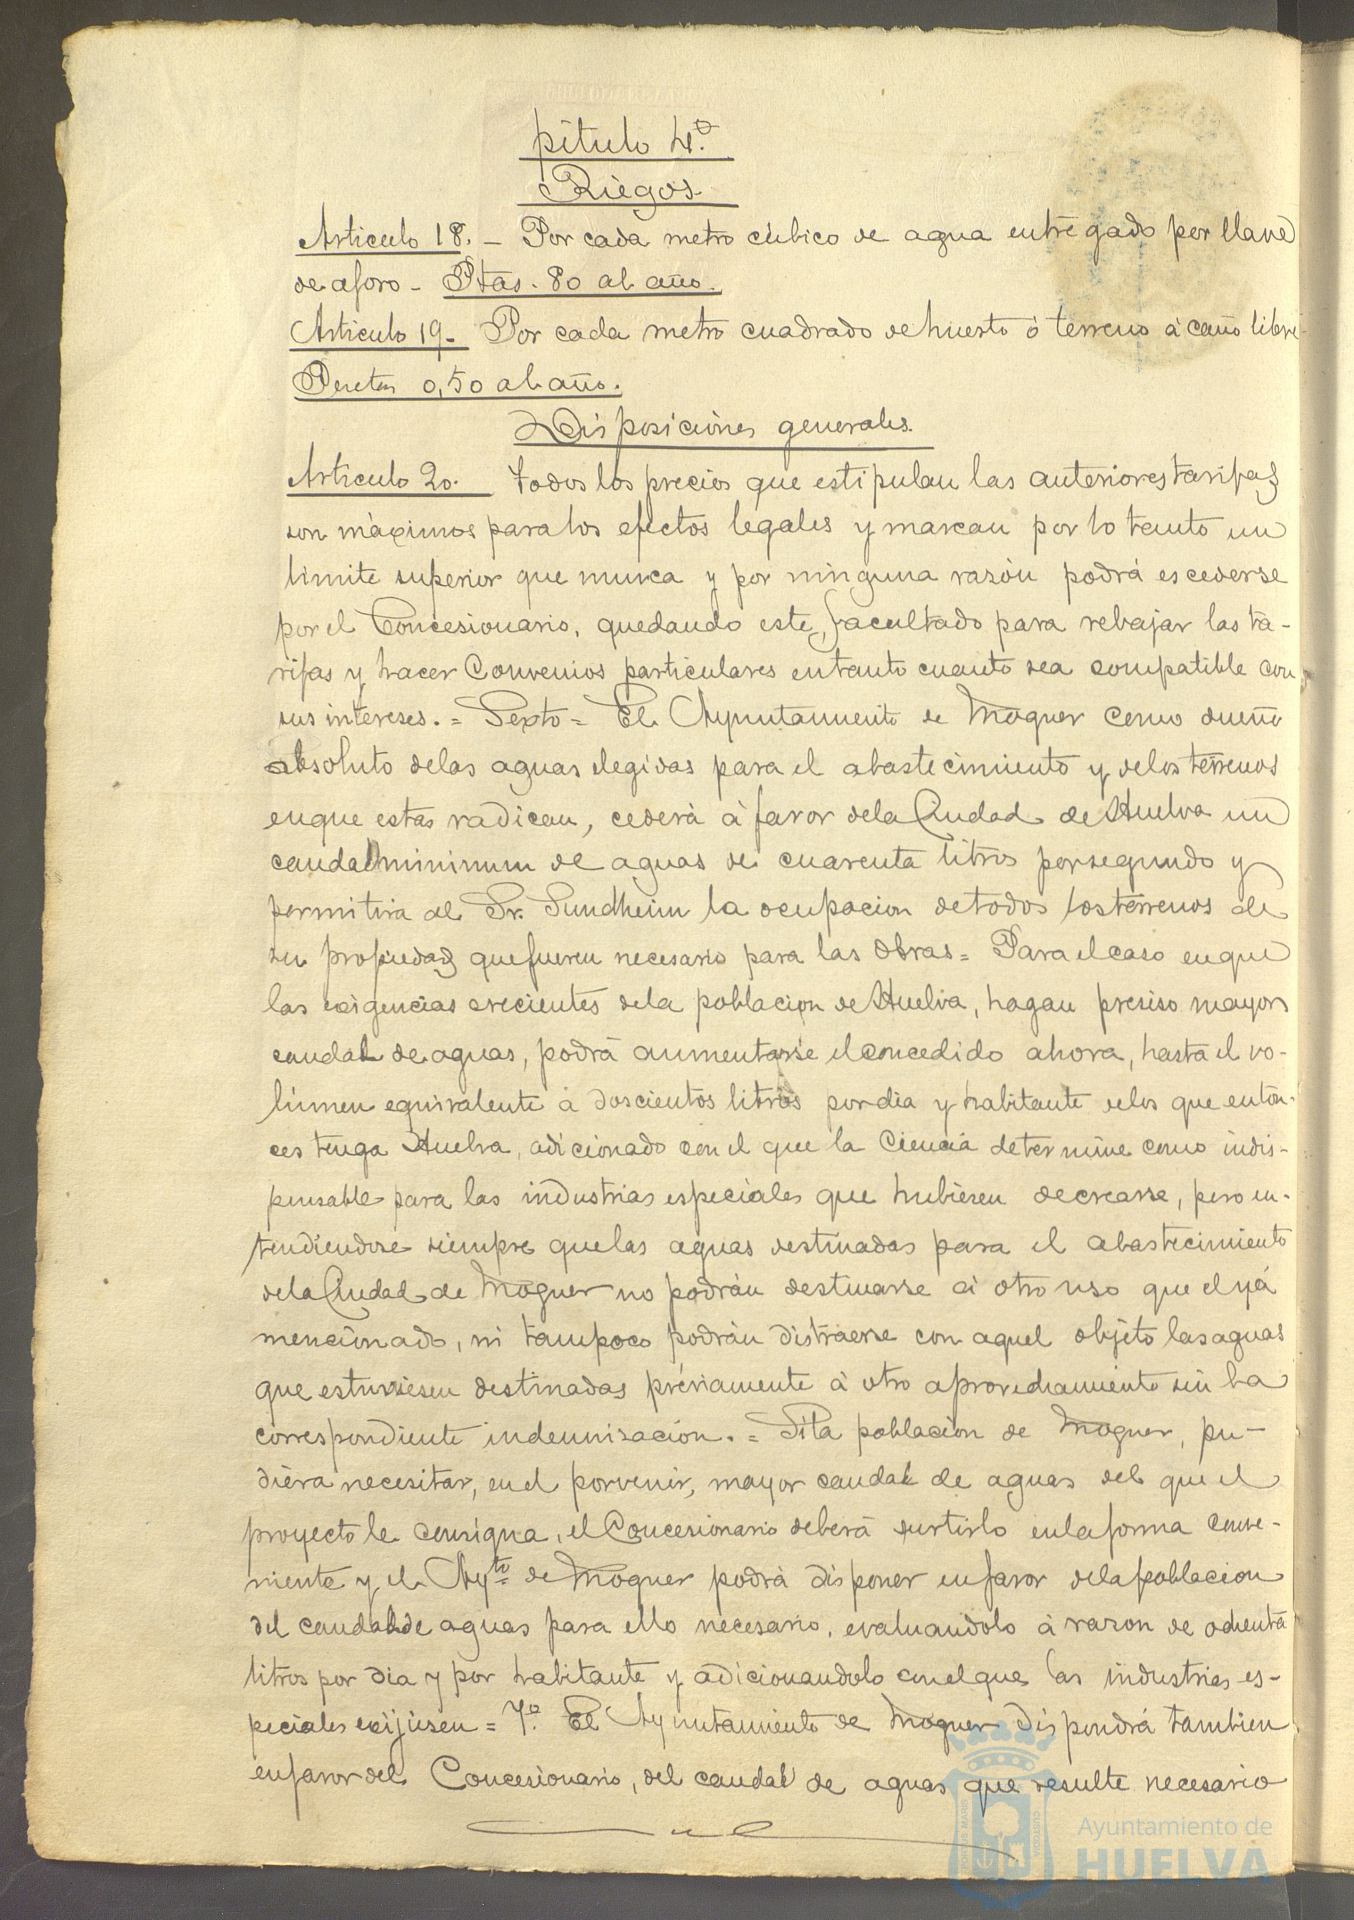 pitulo 4.º
Riegos.
Articulo 18. - Por cada metro cúbico de agua entregado por llave
de aforo - Ptas. 80 al año.
Articulo 19 - Por cada metro cuadrado de huerto ó terreno á caño libre -
Pesetas 0,50 al año.
Disposiciones generales.
Articulo 20. Todos los precios que estipulan las anteriores tarifas
son máximos para los efectos legales y marcan por lo tanto un
limite superior que nunca y por ninguna razón podrá escederse
por el Concesionario, quedando este, facultado para rebajar las ta-
rifas y hacer Convenios particulares en tanto cuanto sea compatible con
sus intereses. = Sexto = El Ayuntamiento de Moguer como dueño
absoluto de las aguas elegidas para el abastecimiento y de los terrenos
en que estas radican, cederá á favor de la Ciudad de Huelva un
caudal minimum de aguas de cuarenta litros por segundo y
permitira al Sr. Sundheim la ocupacion de todos los terrenos de
su propiedad que fueren necesario para las obras = Para el caso en que
las exigencias crecientes de la poblacion de Huelva, hagan presiso mayor
caudal de aguas, podrá aumentarse el concedido ahora, hasta el vo-
lúmen equivalente á doscientos litros por dia y habitante de los que enton-
ces tenga Huelva, adicionado con el que la Ciencia determine como indis-
pensable para las industrias especiales que hubiesen de crearse, pero en-
tendiendose siempre que las aguas destinadas para el abastecimiento
de la Ciudad de Moguer no podrán destinarse á otro uso que el yá
mencionado, ni tampoco podrán distraerse con aquel objeto las aguas
que estuviesen destinadas préviamente á otro aprovechamiento sin la
correspondiente indemnisación. = Si la poblacion de Moguer, pu-
diera necesitar, en el porvenir, mayor caudal de aguas del que el
proyecto le consigna, el Concesionario deberá surtirlo en la forma conve-
niente y el Ayto de Moguer podrá disponer en favor de la poblacion
del caudal de aguas para ello necesario, evaluandolo á razon de ochenta
litros por dia y por habitante y adicionandolo con el que las industrias es-
peciales exijiesen = 7.º El Ayuntamiento de Moguer dispondrá tambien
en favor del Concesionario, del caudal de aguas que resulte necesario
Ayuntamiento de
HUELVA